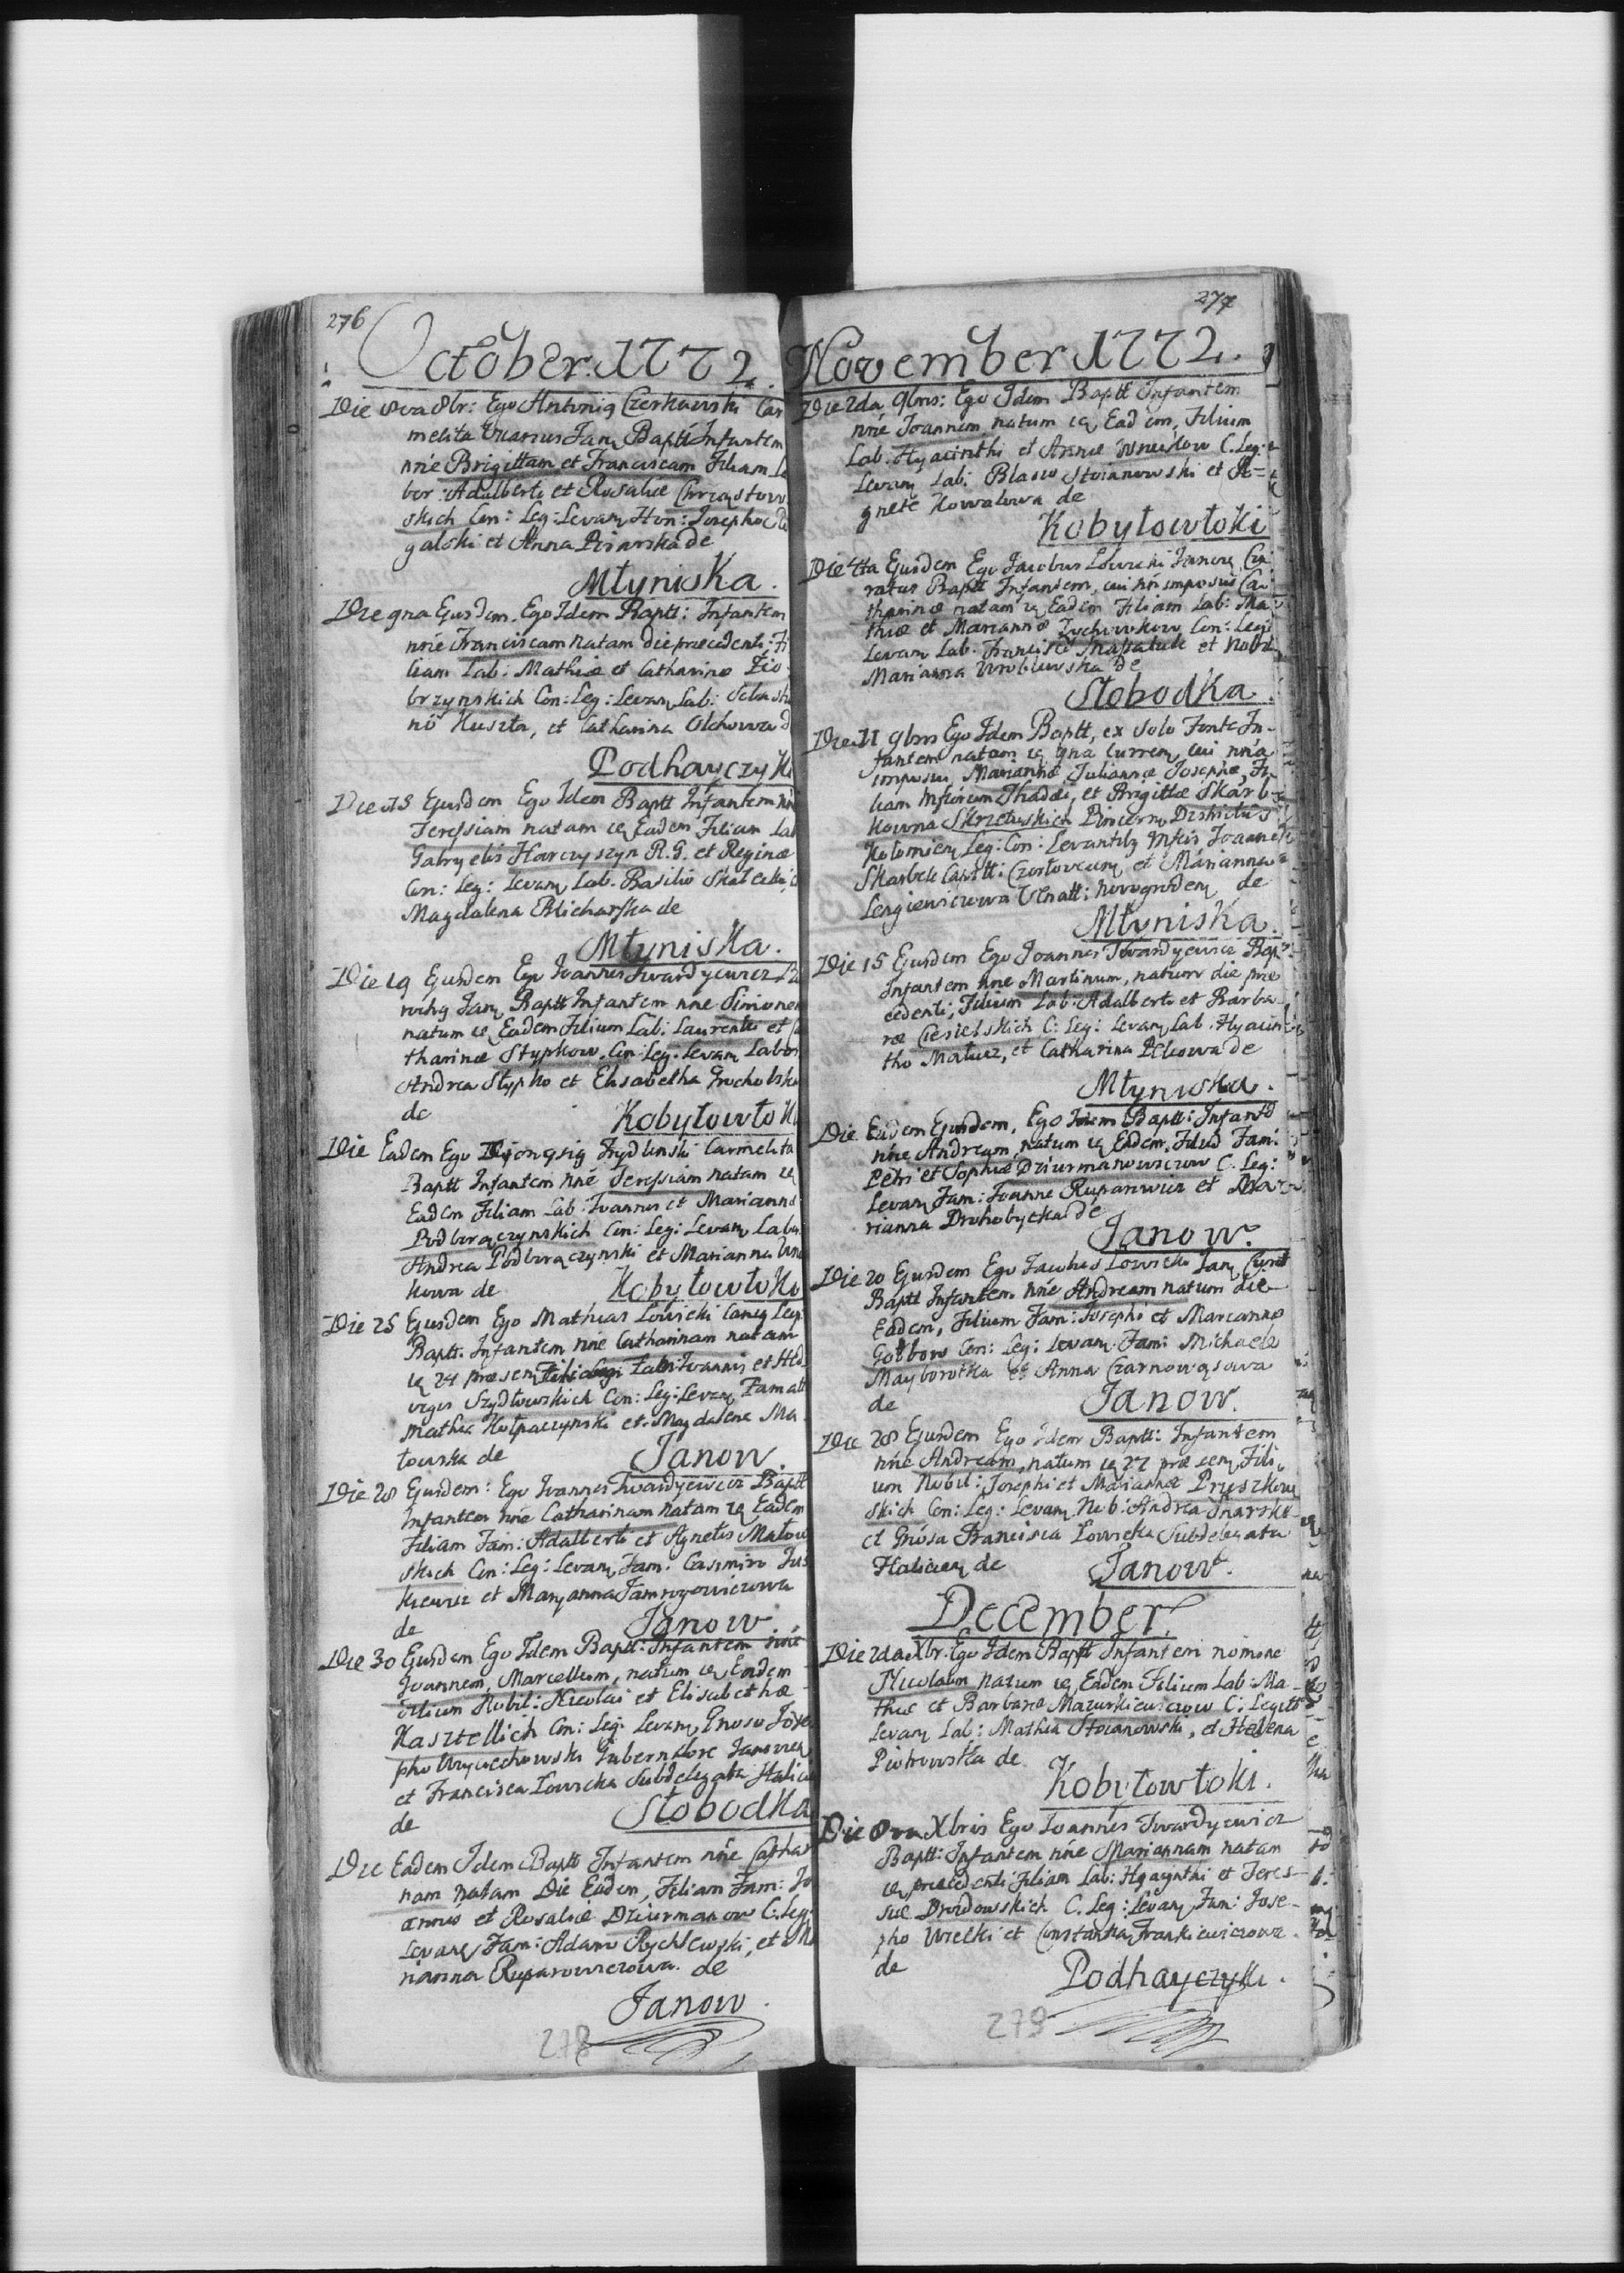 276
October 1772.
Die 8va 8br: Ego Antonig Czerkawski Car
melita Vicarius Jan Baptt Infantem
nnie Brigittam et Franciscam Filiam La
bor: Adalberti et Rosaliæ Chrząstow
skich Con: Leg: Levan Hon: Josepho
galski et Anna Pisarska de
Młyniska.
Die 9na Ejusdem. Ego Idem Baptt: Infantem
nnie Franciscam natam die præcedenti: Fi
liam Lab: Mathiæ et Catharinæ
brzynskich Con: Leg: Levan Lab: Sebasti
no Kuszta, et Catharina Olchowa d
Podhayczyk
Die 18 Ejusdem Ego Idem Baptt Infantem nn
Teressiam natam Eadem Filiam Lab
Gabryelis Harczyszyn R. G. et Reginæ
Con: Leg: Levan Lab. Basilio Skalecki
Magdalena Blicharska de
Młyniska.
Die 19 Ejusdem Ego Joannes Twardyewicz
Jan Baptt Infantem nne Simonem
natum Eadem Filium Lab: Laurenti et Ca
tharinæ Stypkow. Con: Leg: Levan Labor
Andrea Stypko et Elisabetha Grocholska
de Kobyłowłok
Die Eadem Ego Frydlinski Carmelita
Baptt Infantem nné Teressiam natam
Eadem Filiam Lab. Joannis et Marianna
Podborączynskich Con: Leg: Levan Labor
Andrea Podborączynski et Marianna
kowa de Kobyłowłok
Die 25 Ejusdem Ego Mathias Łowicki
Baptt. Infantem nné Catharinam natam
24 præsen Joannis et Hed
vigis Szydłowskich Con: Leg: Levan Famat
Mathia Kołpaczynski et Magdalena Ma
towska de Janow.
Die 28 Ejusdem: Ego Joannes Twardyewicz Baptt
Infantem nné Catharinam natam Eadem
Filiam Fam: Adalberti et Agnetis Matow
skich Con: Leg: Levan Fam: Casimiro Jus
kiewicz et Maryanna Jamrogowiczowa
de Janow.
Die 30 Ejusdem Ego Idem Baptt: Infantem nné
Joannem, Marcellum, natum Eadem
Filium Nobil: Nicolai et Elisabethæ
Kasztellich Con: Leg: Levan Gnoso Jose
pho Woyciechowski Gubernatore Janovien
et Francisca Łowicka Subdelegata Halicie
de Słobodka
Die Eadem Idem Baptt Infantem nné Cathar
nam natam Die Eadem, Filiam Fam: Jo
annis et Rosaliæ Dziurmanow C: Leg:
Levan Fam: Adamo Rychlewski, et Ma
rianna Ruparowiczowa de
Janow.
278
277
November 1772.
Die 2da 9bris: Ego Idem Baptt Infantem
nné Joannem natum Eadem, Filium
Lab. Hyacinthi et Annæ C. Leg:
Levan Lab: Blasio Stoianowski et A=
gnete Kowalowa de
Kobyłowłoki
Die 4ta Ejusdem Ego Jacobus Łowicki Janov Cu
ratus Baptt Infantem, cui nn imposui Ca
tharinæ natam Eadem Filiam Lab: Ma
thiæ et Mariannæ Con: Leg:
Levan Lab. Francisco et Nobil
Marianna Wroblewska de
Słobodka.
Die 11 9bris Ego Idem Baptt, ex solo Fonte In-
fantem natam 9na Curren, cui nnia
imposui, Mariannæ, Juliannæ Josephæ, Fi-
liam Thaddei, et Brigittæ Skarb
kowna Skrzetuskich Pincerna Districtus
Kołomien Leg: Con: Levantibg Joanne
Skarbek Capitt: Czortovien et Marianna
Lengiewiczowa Venatt: Novogroden de
Młyniska.
Die 15 Ejusdem Ego Joannes Twardyewicz Bap
Infantem nne Martinum, natum die præ
cedenti, Filium Lab: Adalberti et Barba-
ræ Ciesielskich C: Leg: Levan Lab. Hyacin
tho Matusz, et Catharina de
Młyniska.
Die Eadem Ejusdem, Ego Idem Baptt: Infantē
nne Andream, natum Eadem, Fam:
Petri et Sophiæ Dziurmanowiczow C. Leg:
Levan Fam: Joanne Ruparowicz et Ma
rianna Drohobycka de
Janow.
Die 20 Ejusdem Ego Jacobus Łowicki Jan Curat
Baptt Infantem nné Andream natum die
Eadem, Filium Fam: Josephi et Mariannæ
Con: Leg: Levan Fam: Michaele
Mayborotka et Anna Czarnowąsowa
de Janow.
Die 28 Ejusdem Ego Idem Baptt: Infantem
nné Andream, natum 27 præsen, Fili
um Nobil: Josephi et Mariannæ Pruszkow
skich Con: Leg: Levan Nob: Andrea Snarski
et Gnosa Francisca Łowicka Subdelegata
Halicien de Janow.
December.
Die 2da Xbr. Ego Idem Baptt Infantem nomine
Nicolaum natum Eadem Filium Lab: Ma-
thiæ et Barbaræ Mazurkiewiczow C: Legitt
Levan Lab: Mathia Stoianowski, et Helena
Piotrowska de
Kobyłowłoki.
Die 8va Xbris Ego Joannes Twardyewicz
Baptt: Infantem nné Mariannam natam
præcedenti Filiam Lab: Hyacinthi et Teres-
siæ Drozdowskich C. Leg: Levan Fam: Jose-
pho Wielki et Constantia Frankiewiczowa.
de Podhayczyki.
279